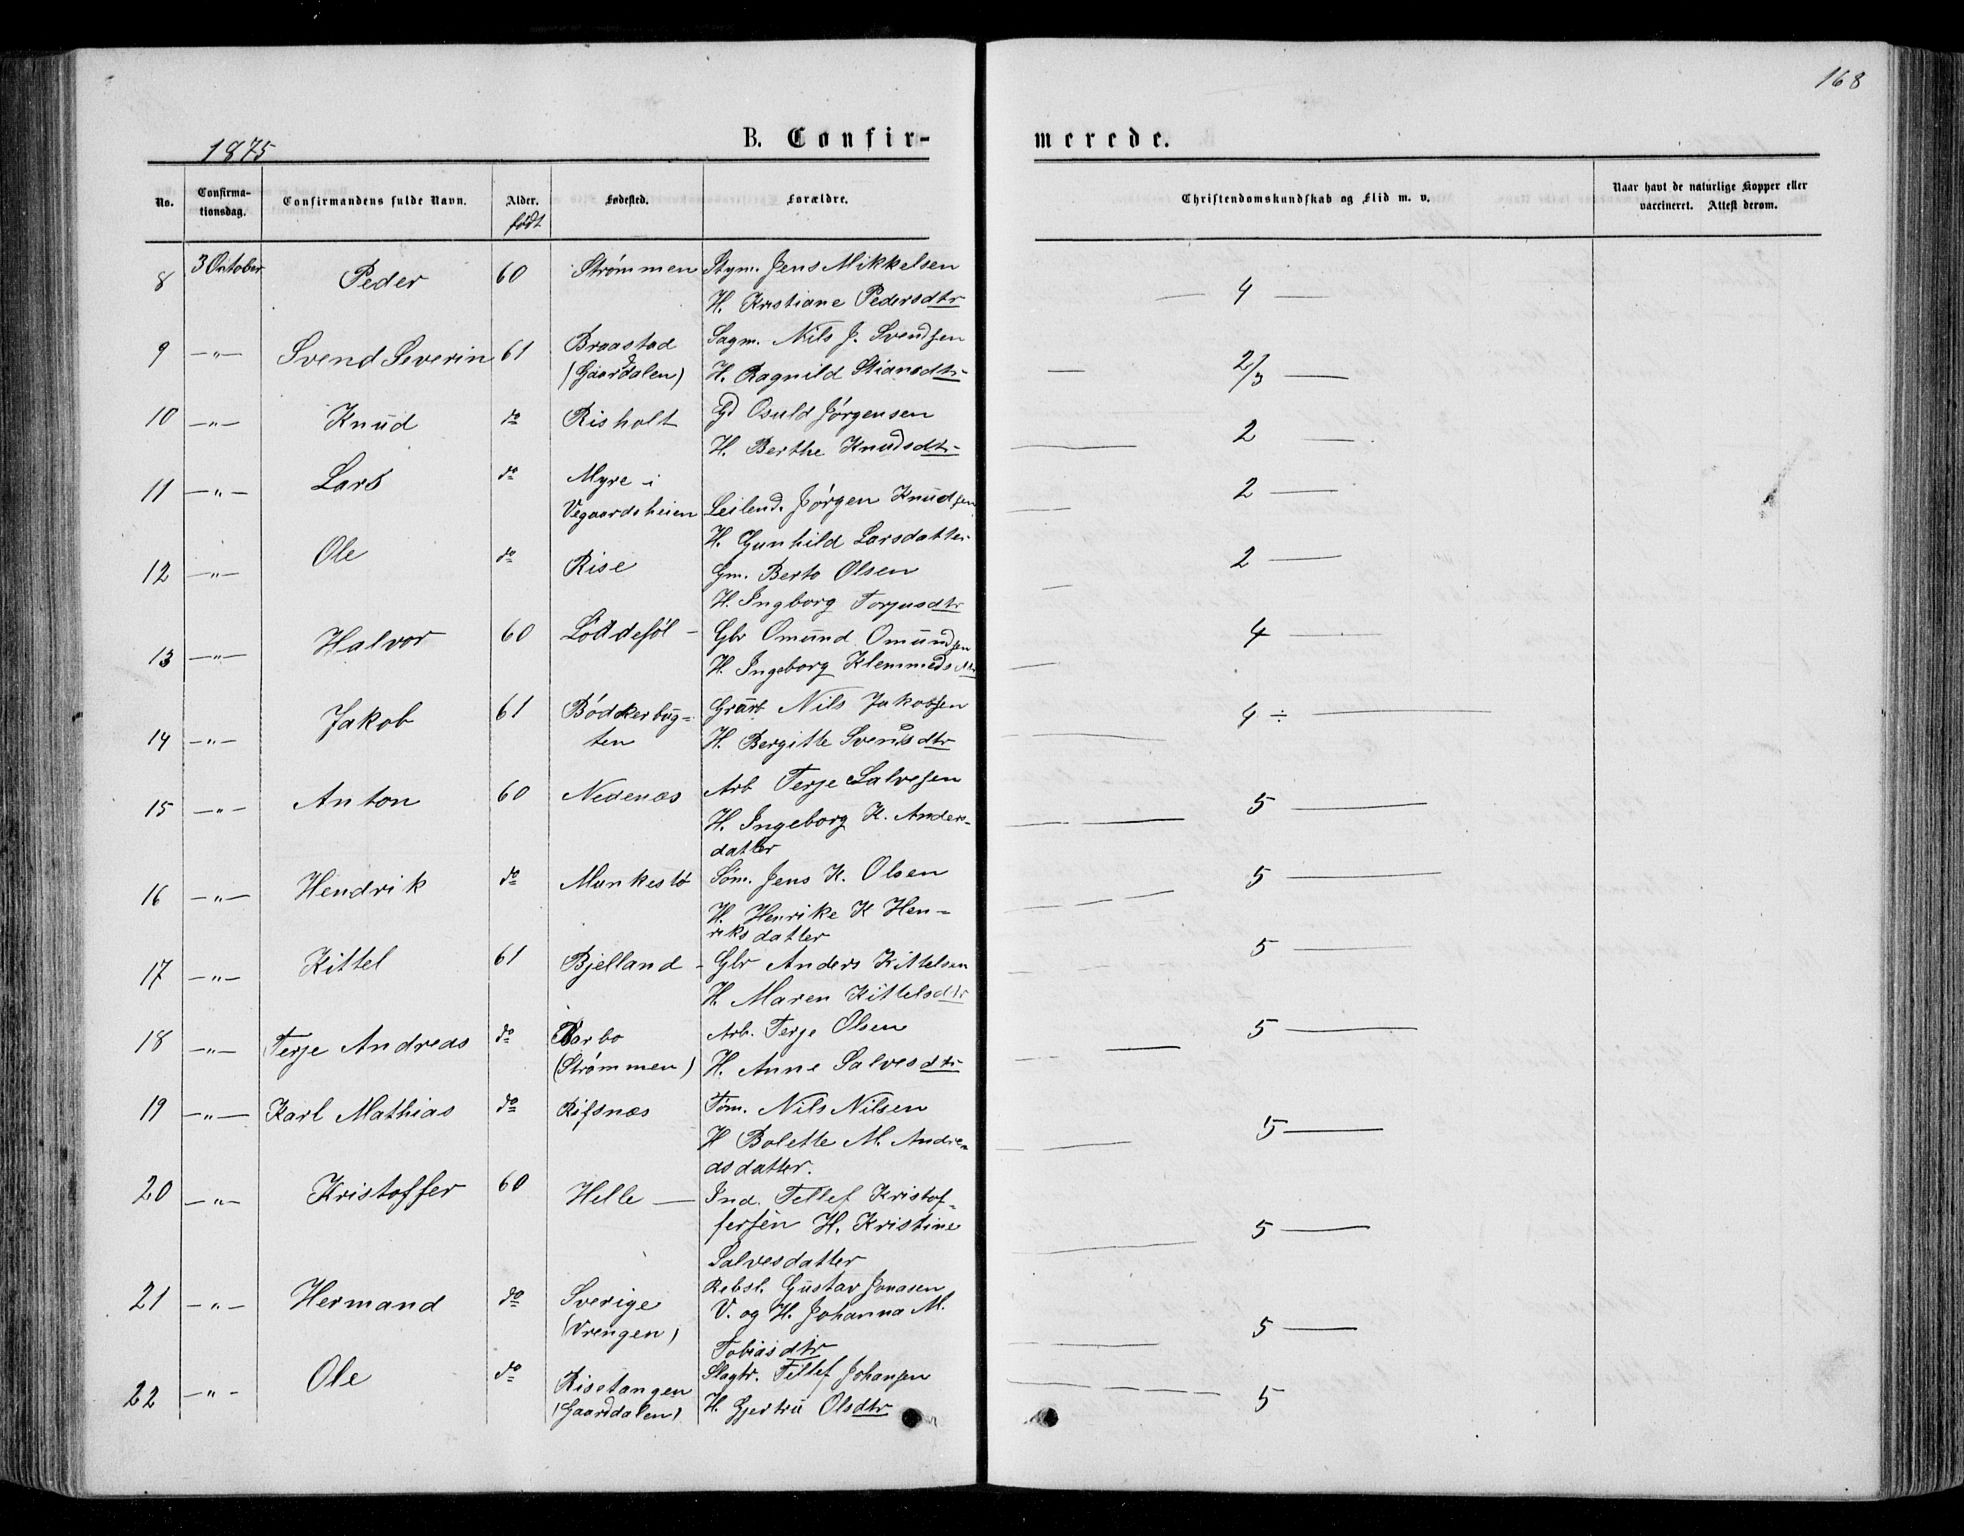 168
1875
B. Confir- merede.
No. Confirma-tionsdag. Confirmandens fulde Navn. Alder. født Fødested. Forældre. Christendomskundskab og Flid m. v. Naar havt de naturlige Kopper eller vaccineret. Attest derom.
8 3 October Peder 60 Strømmen Stym. Jens Mikkelsen
H. Kristiane Pedersdtr — 4 —
9 —"— Svend Severin 61 Braastad Sagm. Nils J. Svendsen
(Gaardalen) H. Ragnild Stiansdtr — 2/3 —
10 —"— Knud do Risholt Gd Osuld Jørgensen
H. Berthe Knudsdtr — 2 —
11 —"— Lars do Myre i
Vegaardsheien Leilend. Jørgen Knudsen — 2 —
H. Gunhild Larsdatter
12 —"— Ole do Rise Gm. Berto Olsen — 2 —
H. Ingborg Torjusdtr
13 —"— Halvor 60 Løddesøl — Gbr Omund Omundsen — 4 —
H. Ingeborg Klemmedsdtr
14 —"— Jakob 61 Bødkerbug- Nils Jakobsen — 4 ÷ —
ten H. Bergitte Svensdtr
15 —"— Anton 60 Nedenæs Arb Terje Salvesen — 5 —
H. Ingeborg K. Anders-
datter
16 —"— Hendrik do Munkestø Søm. Jens K. Olsen — 5 —
H. Henrike K Hen-
riksdatter
17 —"— Kittel 61 Bjelland - Gbr Anders Kittelsen — 5 —
H. Maren Kittelsdtr
18 —"— Terje Andreas do Barbo Arb. Terje Olsen — 5 —
(Strømmen) H. Anne Salvesdtr
19 —"— Karl Mathias do Refsnæs Tøm. Nils Nilsen — 5 —
H Bolette M. Andre-
dsdatter.
20 —"— Kristoffer 60 Helle — Ind. Tellef Kristof-
fersen H. Kristine — 5 —
Salvesdatter
21 —"— Hermand do Sverige Rebsl. Gustav Jonasen
(Vrengen) V. og H. Johanna M. — 5 —
Tobiasdtr
22 —"— Ole do Risetangen Slagtr. Tellef Johansen
(Gaarddalen) H. Gjertru Olsdtr — 5